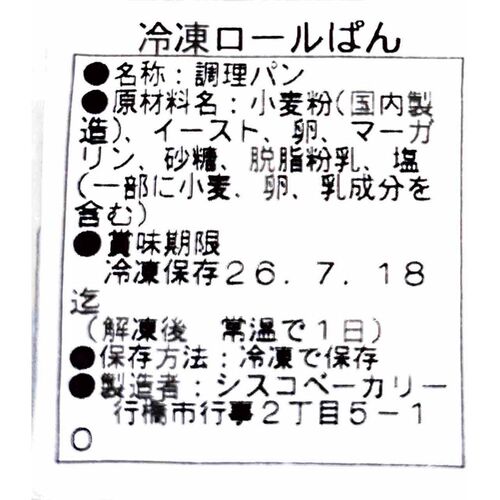 冷凍ロールぱん
●名称：調理パン
●原材料名：小麦粉(国内製
造)、イースト、卵、マーガ
リン、砂糖、脱脂粉乳、塩
(一部に小麦、卵、乳成分を
含む)
●賞味期限
冷凍保存２６．７．１８
迄
(解凍後　常温で１日)
●保存方法：冷凍で保存
●製造者：シスコベーカリー
行橋市行事２丁目５−１
０